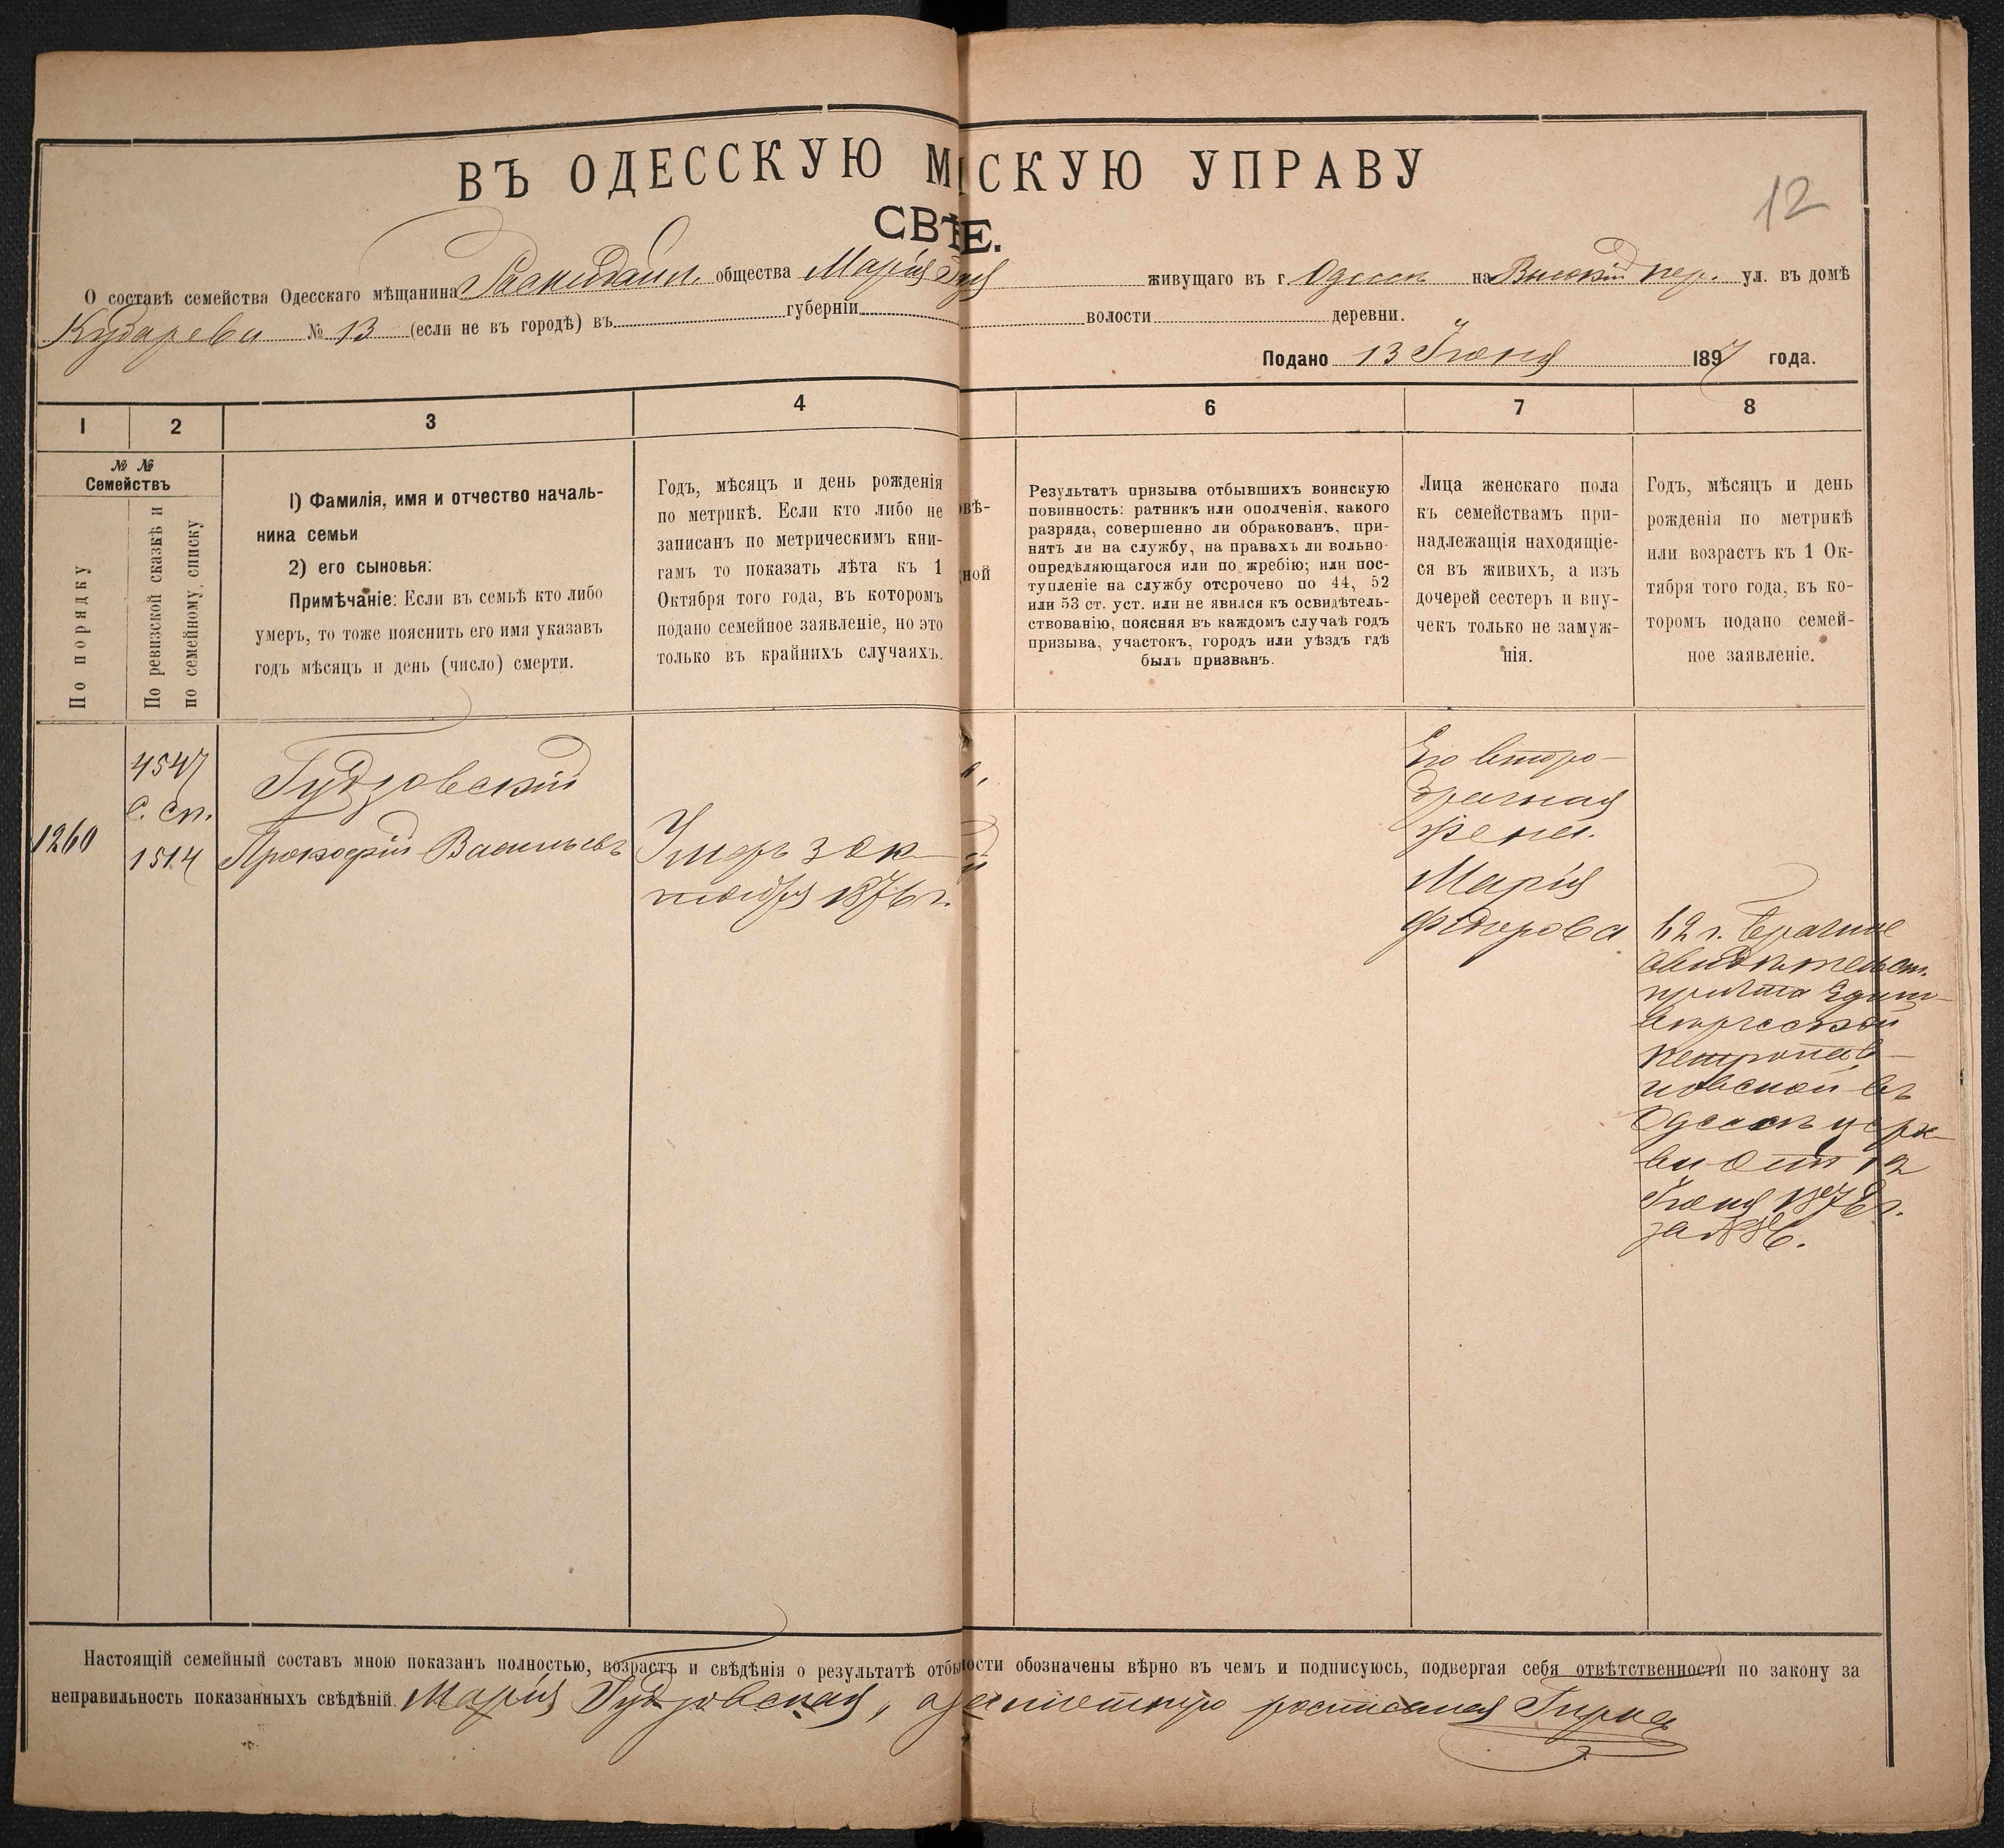 12
ВЪ ОДЕССКУЮ М СКУЮ УПРАВУ
СВѢ Е.
О составѣ семейства Одесскаго мѣщанина общества Марія живущаго въ г Одессѣ на Высокій пер. ул. въ домѣ
Кударева № 13 (если не въ городѣ) въ губерніи волости деревни.
Подано 13 Іюня 1897 года.
1 2 3 4 6 7 8
№ №
Семействъ
По порядку
По ревизской сказкѣ и
по семейному списку
1) Фамилія, имя и отчество началь-
ника семьи
2) его сыновья:
Примѣчаніе: Если въ семьѣ кто либо
умеръ, то тоже пояснить его имя указавъ
годъ мѣсяцъ и день (число) смерти.
Годъ, мѣсяцъ и день рожденія
по метрикѣ. Если кто либо не
записанъ по метрическимъ кни-
гамъ то показать лѣта къ 1
Октября того года, въ которомъ
подано семейное заявленіе, но это
только въ крайнихъ случаяхъ.
овѣ-
ной
Результатъ призыва отбывшихъ воинскую
повинность: ратникъ или ополченія, какого
разряда, совершенно ли обракованъ, при-
нятъ ли на службу, на правахъ ли вольно-
опредѣляющагося или по жребію; или пос-
тупленіе на службу отсрочено по 44, 52
или 53 ст. уст. или не явился къ освидѣтель-
ствованію, поясняя въ каждомъ случаѣ годъ
призыва, участокъ, городъ или уѣздъ гдѣ
былъ призванъ.
Лица женскаго пола
къ семействамъ при-
надлежащія находящіе-
ся въ живихъ, а изъ
дочерей сестеръ и вну-
чекъ только не замуж-
нія.
Годъ, мѣсяцъ и день
рожденія по метрикѣ
или возрастъ къ 1 Ок-
тября того года, въ ко-
торомъ подано семей-
ное заявленіе.
1260
4547
с. сп.
1514
Гудзовскій
Прокофій Васильевъ
Умеръ 3 ок-
тября 1876 г.
Его второ-
брачная
жена
Марія
Федорова
62 г. Брачное
свидѣтельст.
причта Едино-
вѣрческой
Петропав-
ловской въ
Одессѣ церк-
ви отъ 12
Іюня 1876 г.
за № 86.
Настоящій семейный составъ мною показанъ полностью, возрастъ и свѣдѣнія о результатѣ отбы ности обозначены вѣрно въ чемъ и подписуюсь, подвергая себя отвѣтственности по закону за
неправильность показанныхъ свѣдѣній. Марія Гудзовская,